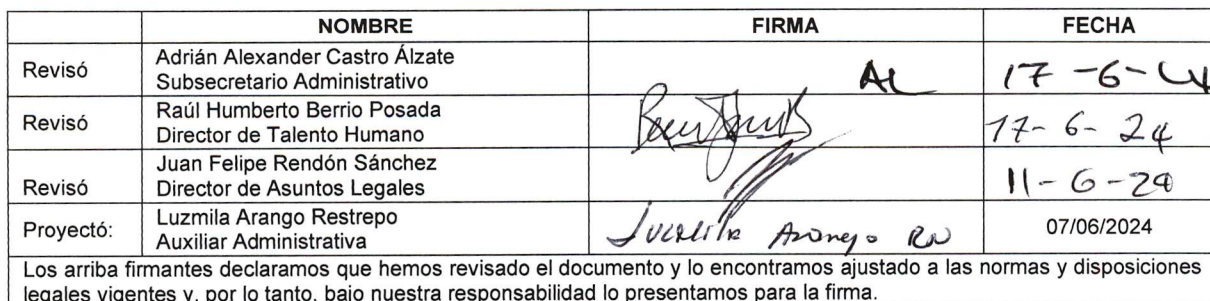 NOMBRE FIRMA FECHA
Revisó Adrián Alexander Castro Álzate
Subsecretario Administrativo AL 17-6-24
Revisó Raúl Humberto Berrio Posada
Director de Talento Humano 17-6-24
Revisó Juan Felipe Rendón Sánchez
Director de Asuntos Legales 11-6-24
Proyectó: Luzmila Arango Restrepo
Auxiliar Administrativa 07/06/2024
Los arriba firmantes declaramos que hemos revisado el documento y lo encontramos ajustado a las normas y disposiciones
legales vigentes y, por lo tanto, bajo nuestra responsabilidad lo presentamos para la firma.